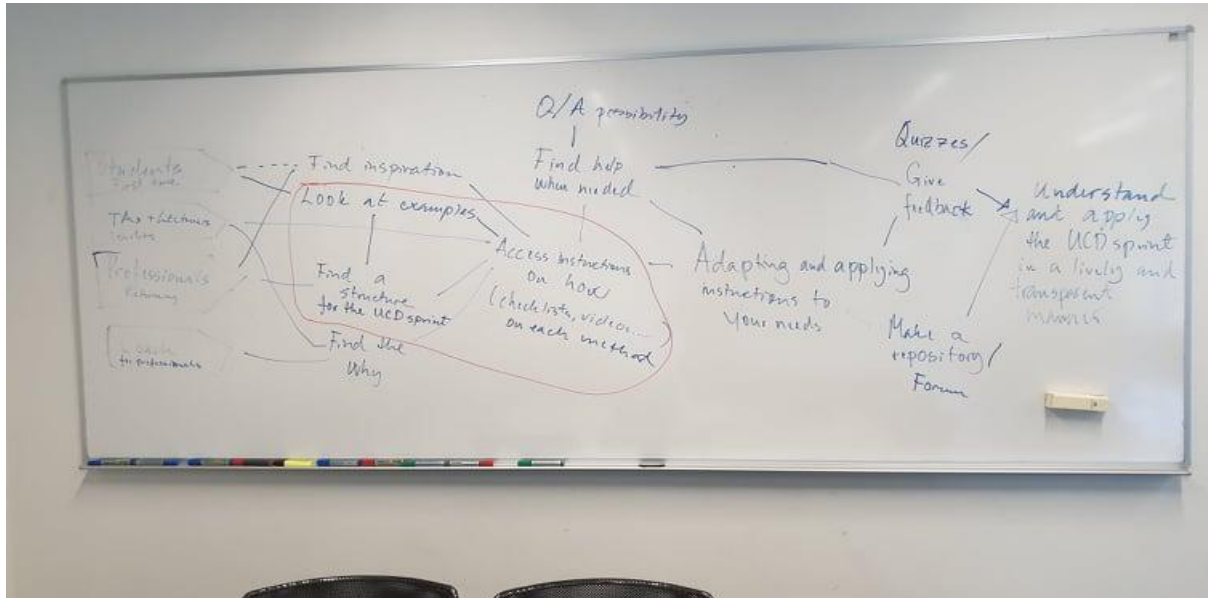 Students
First time
TAs + Lecturers
Professionals
Returning
Coach
for professionals
Find inspiration
Look at examples
Find a
structure
for the UCD sprint
Find the
Why
Q/A possibility
Find help
when needed
Access instructions
on how
(checklists, videos...)
on each method
Adapting and applying
instructions to
Your needs
Quizzes/
Give
feedback
Make a
repository/
Forum
Understand
and apply
the UCD sprint
in a lively and
transparent
manner